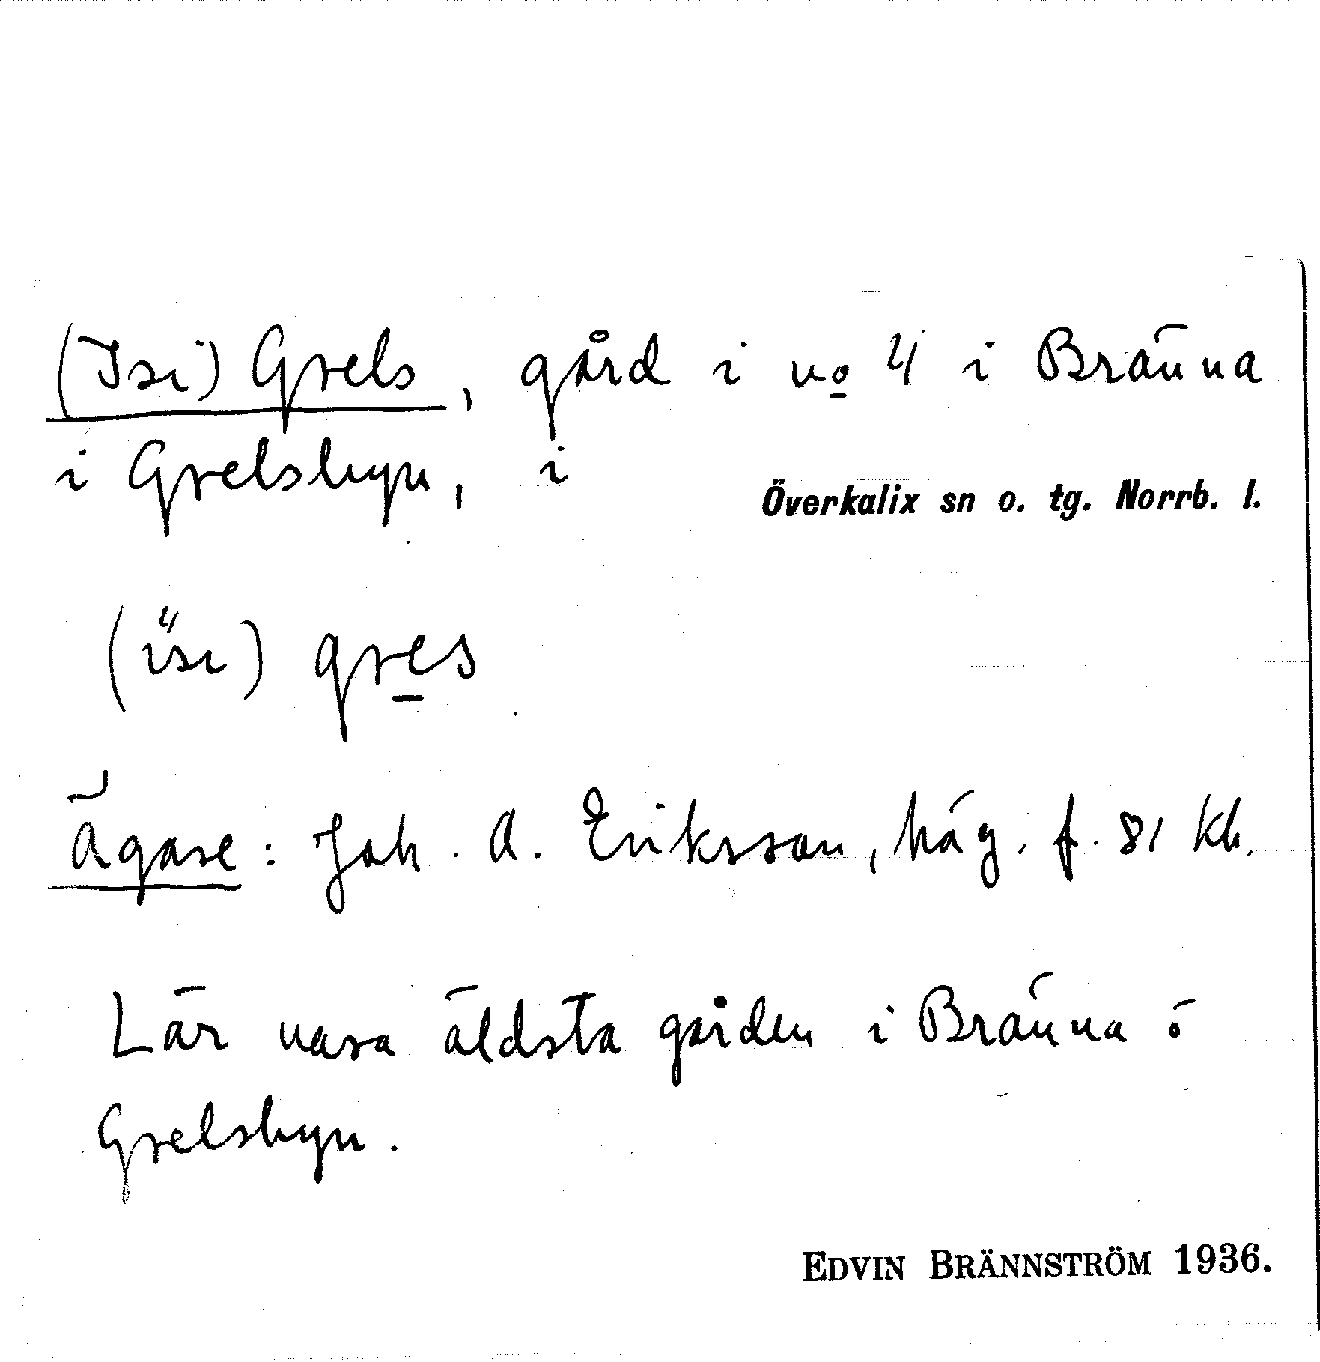 (Isi) Grels, gård i no 4 i Bränna
i Grelsbyn, i Överkalix sn o. tg. Norrb. l.
(isi) gres
Ägare: Joh. A. Eriksson, häg. f. 81 Kb.
Lär vara äldsta gården i Bränna ö
Grelsbyn.
EDVIN BRÄNNSTRÖM 1936.